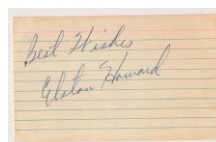 Best Wishes
Elston Howard